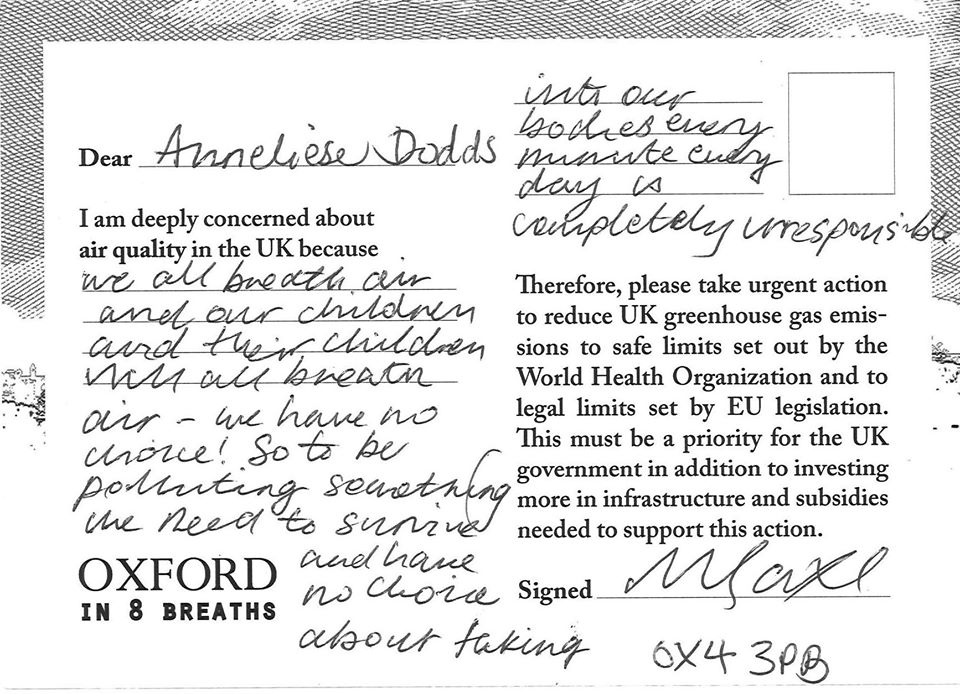 Dear Anneliese Dodds
I am deeply concerned about
air quality in the UK because
we all breath air
and our children
and their children
will all breath
air - we have no
choice! So to be
polluting something
we need to survive
and have
no choice
about taking
into our
bodies every
minute every
day is
completely irresponsible
Therefore, please take urgent action
to reduce UK greenhouse gas emis-
sions to safe limits set out by the
World Health Organization and to
legal limits set by EU legislation.
This must be a priority for the UK
government in addition to investing
more in infrastructure and subsidies
needed to support this action.
Signed
OX4 3PB
OXFORD
IN 8 BREATHS